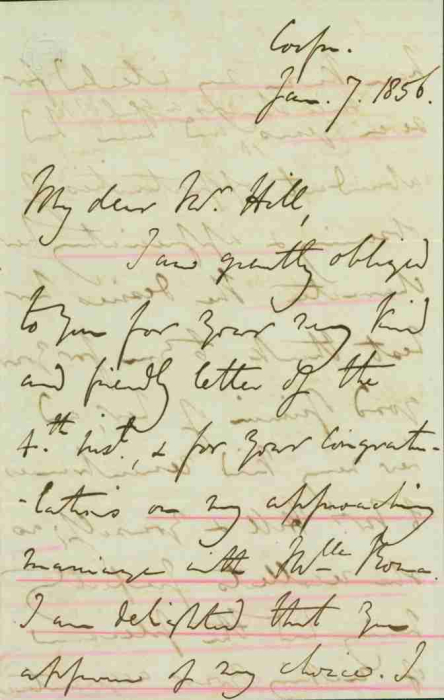 Corfu.
Jan. 7. 1856.
My dear Mr. Hill,
I am greatly obliged
to you for your very kind
and friendly letter of the
4.th inst., & for your congratu-
-lations on my approaching
marriage with Mlle Roma.
I am delighted that you
approve of my choice. I